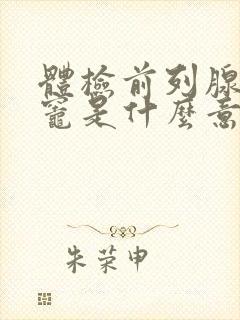 體檢前列腺
竈是什麼意
朱荣申